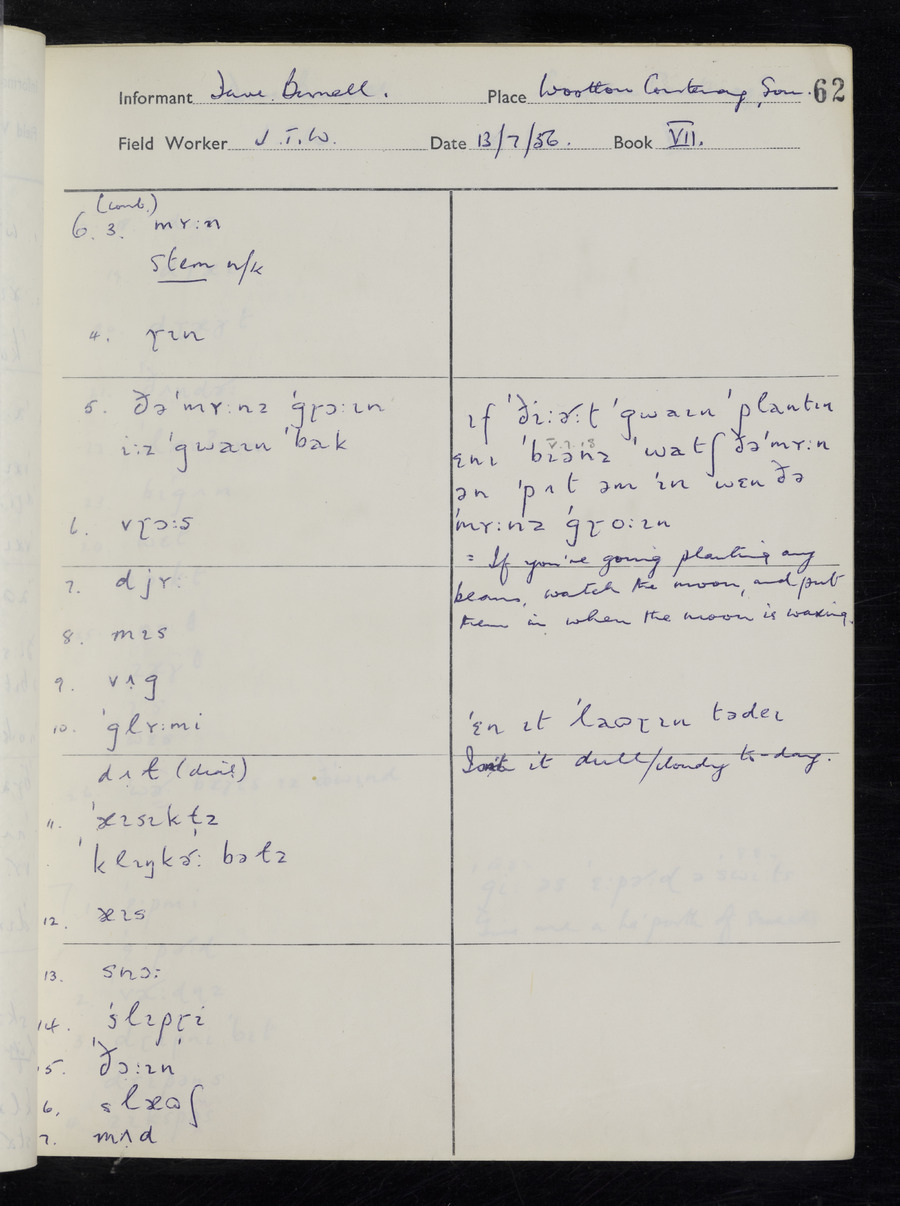 Informant Dave Burnell.
Place Wootton Courtenay, Som. 62
Field Worker J.T.W.
Date 13/7/56.
Book VII.
(cont.)
6. 3. mʏ:n
stem n/k
4. ɽɪn
5. ðə'mʏ:nz 'gɽɔ:ɪn
i:z 'gwaɪn 'bak
6. vɽɔ:s
7. djʏ:
8. mɪs
9. vʌg
10. 'glʏ:mi
dʌt (dial)
11. 'æɪsɪkʈz
'klɪŋkɚ: bəlz
12. æɪs
13. snɔ:
14. 'slɪpɽi
15. 'ðɔ:ɪn
6. slæʊʃ
7. mʌd
ɪf 'ði:ɚ:t 'gwaɪn 'plantɪn
ɛnɪ 'bɪənz 'watʃ ðə'mʏ:n
V.7.18
ən 'pʌt əm 'ɪn wɛn ðə
'mʏ:nz 'gɽo:ɪn
= If you're going planting any
beans, watch the moon, and put
them in when the moon is waxing.
'ɛn ɪt 'laʊɽɪn tədeɪ
Isn't it dull/cloudy to-day.